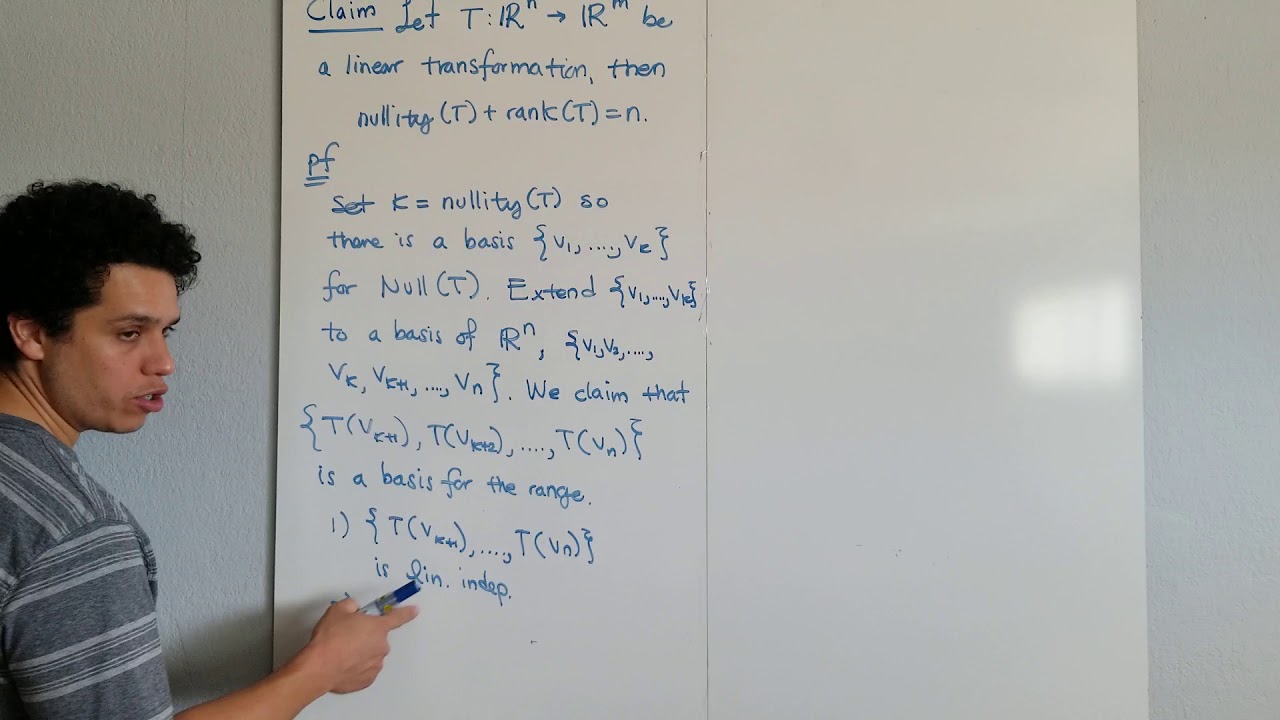 Claim Let T: ℝⁿ → ℝᵐ be
a linear transformation, then
nullity(T) + rank(T) = n.
pf
Set K = nullity(T) so
there is a basis {v₁, ...., vₖ}
for Null(T). Extend {v₁, ...., vₖ}
to a basis of ℝⁿ, {v₁, v₂, ....,
vₖ, vₖ₊₁, ...., vₙ}. We claim that
{T(vₖ₊₁), T(vₖ₊₂), ...., T(vₙ)}
is a basis for the range.
1) {T(vₖ₊₁), ...., T(vₙ)}
is lin. indep.